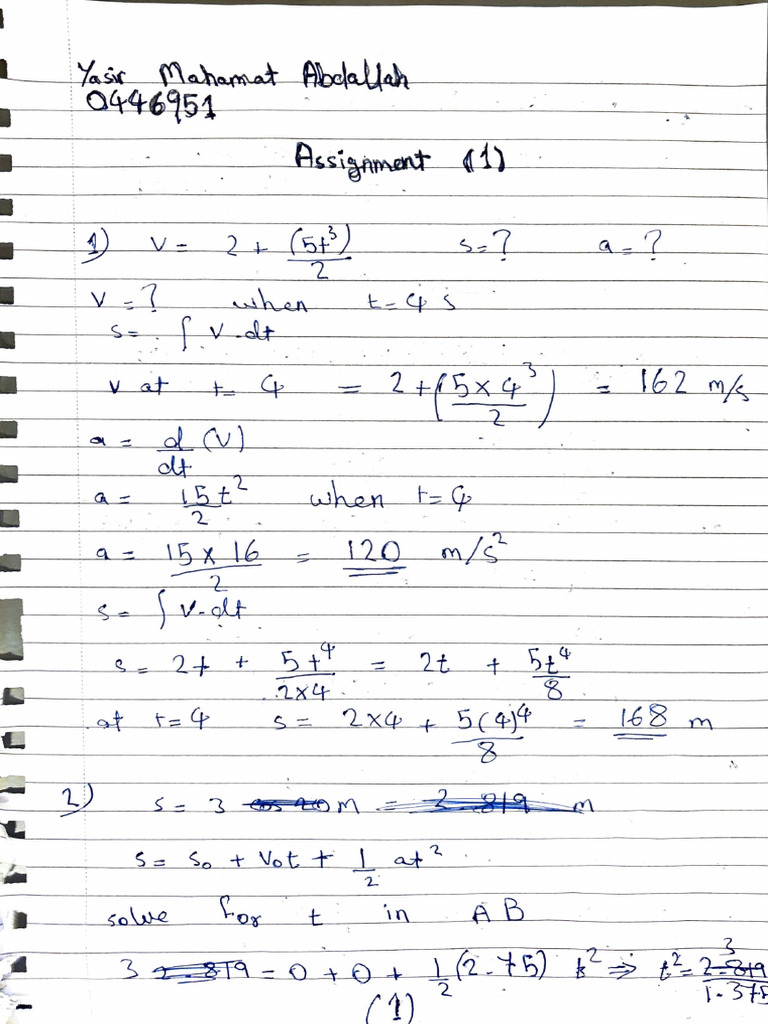 Yasir Mahamat Abdallah
0446951
Assignment (1)
1) v = 2 + (5t³)/2 s = ? a = ?
v = ? when t = 4 s
s = ∫ v.dt
v at t = 4 = 2 + (5 × 4³/2) = 162 m/s
a = d/dt (v)
a = 15t²/2 when t = 4
a = 15 × 16/2 = 120 m/s²
s = ∫ v.dt
s = 2t + 5t⁴/2×4 = 2t + 5t⁴/8
at t = 4 s = 2×4 + 5(4)⁴/8 = 168 m
2) s = 3 cos 20 m = 2.819 m
s = s₀ + v₀t + 1/2 at²
solve for t in AB
3 2.819 = 0 + 0 + 1/2 (2.75) t² ⇒ t² = 3 2.819/1.375
(1)